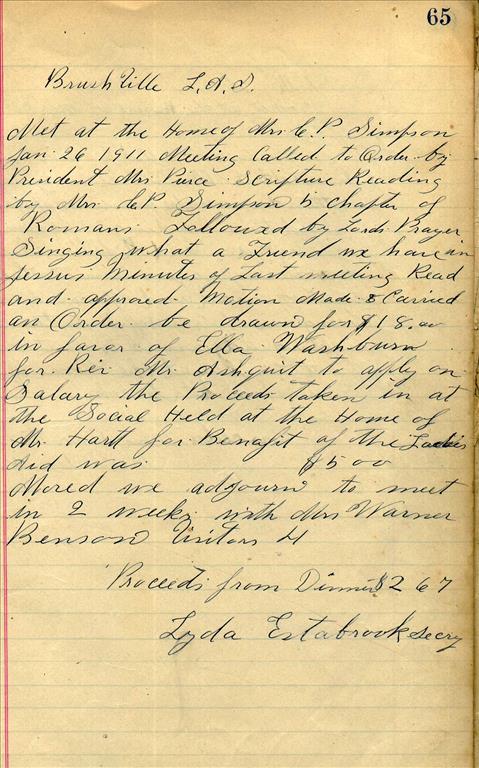 65
Brushville L.A.S.
Met at the Home of Mrs C.P. Simpson
Jan 26 1911 Meeting Called to Order by
President Mrs Pierce Scripture Reading
by Mrs C.P. Simpson 5 chapter of
Romans Followed by Lords Prayer
Singing what a Friend we have in
Jessus Minutes of Last meeting Read
and approved Motion Made & Carried
an Order be drawn for $18.00
in favor of Ella Washburn
for Rev Mr. Ashquit to apply on
Salary the Proceeds taken in at
the Social Held at the Home of
Mr. Hartt for Benafit of the Ladies
Aid was $5 00
Moved we adjourn to meet
in 2 weeks with Mrs Warner
Benson Visitors 4
Proceeds from Dinner $2 67
Lyda Estabrook Secry